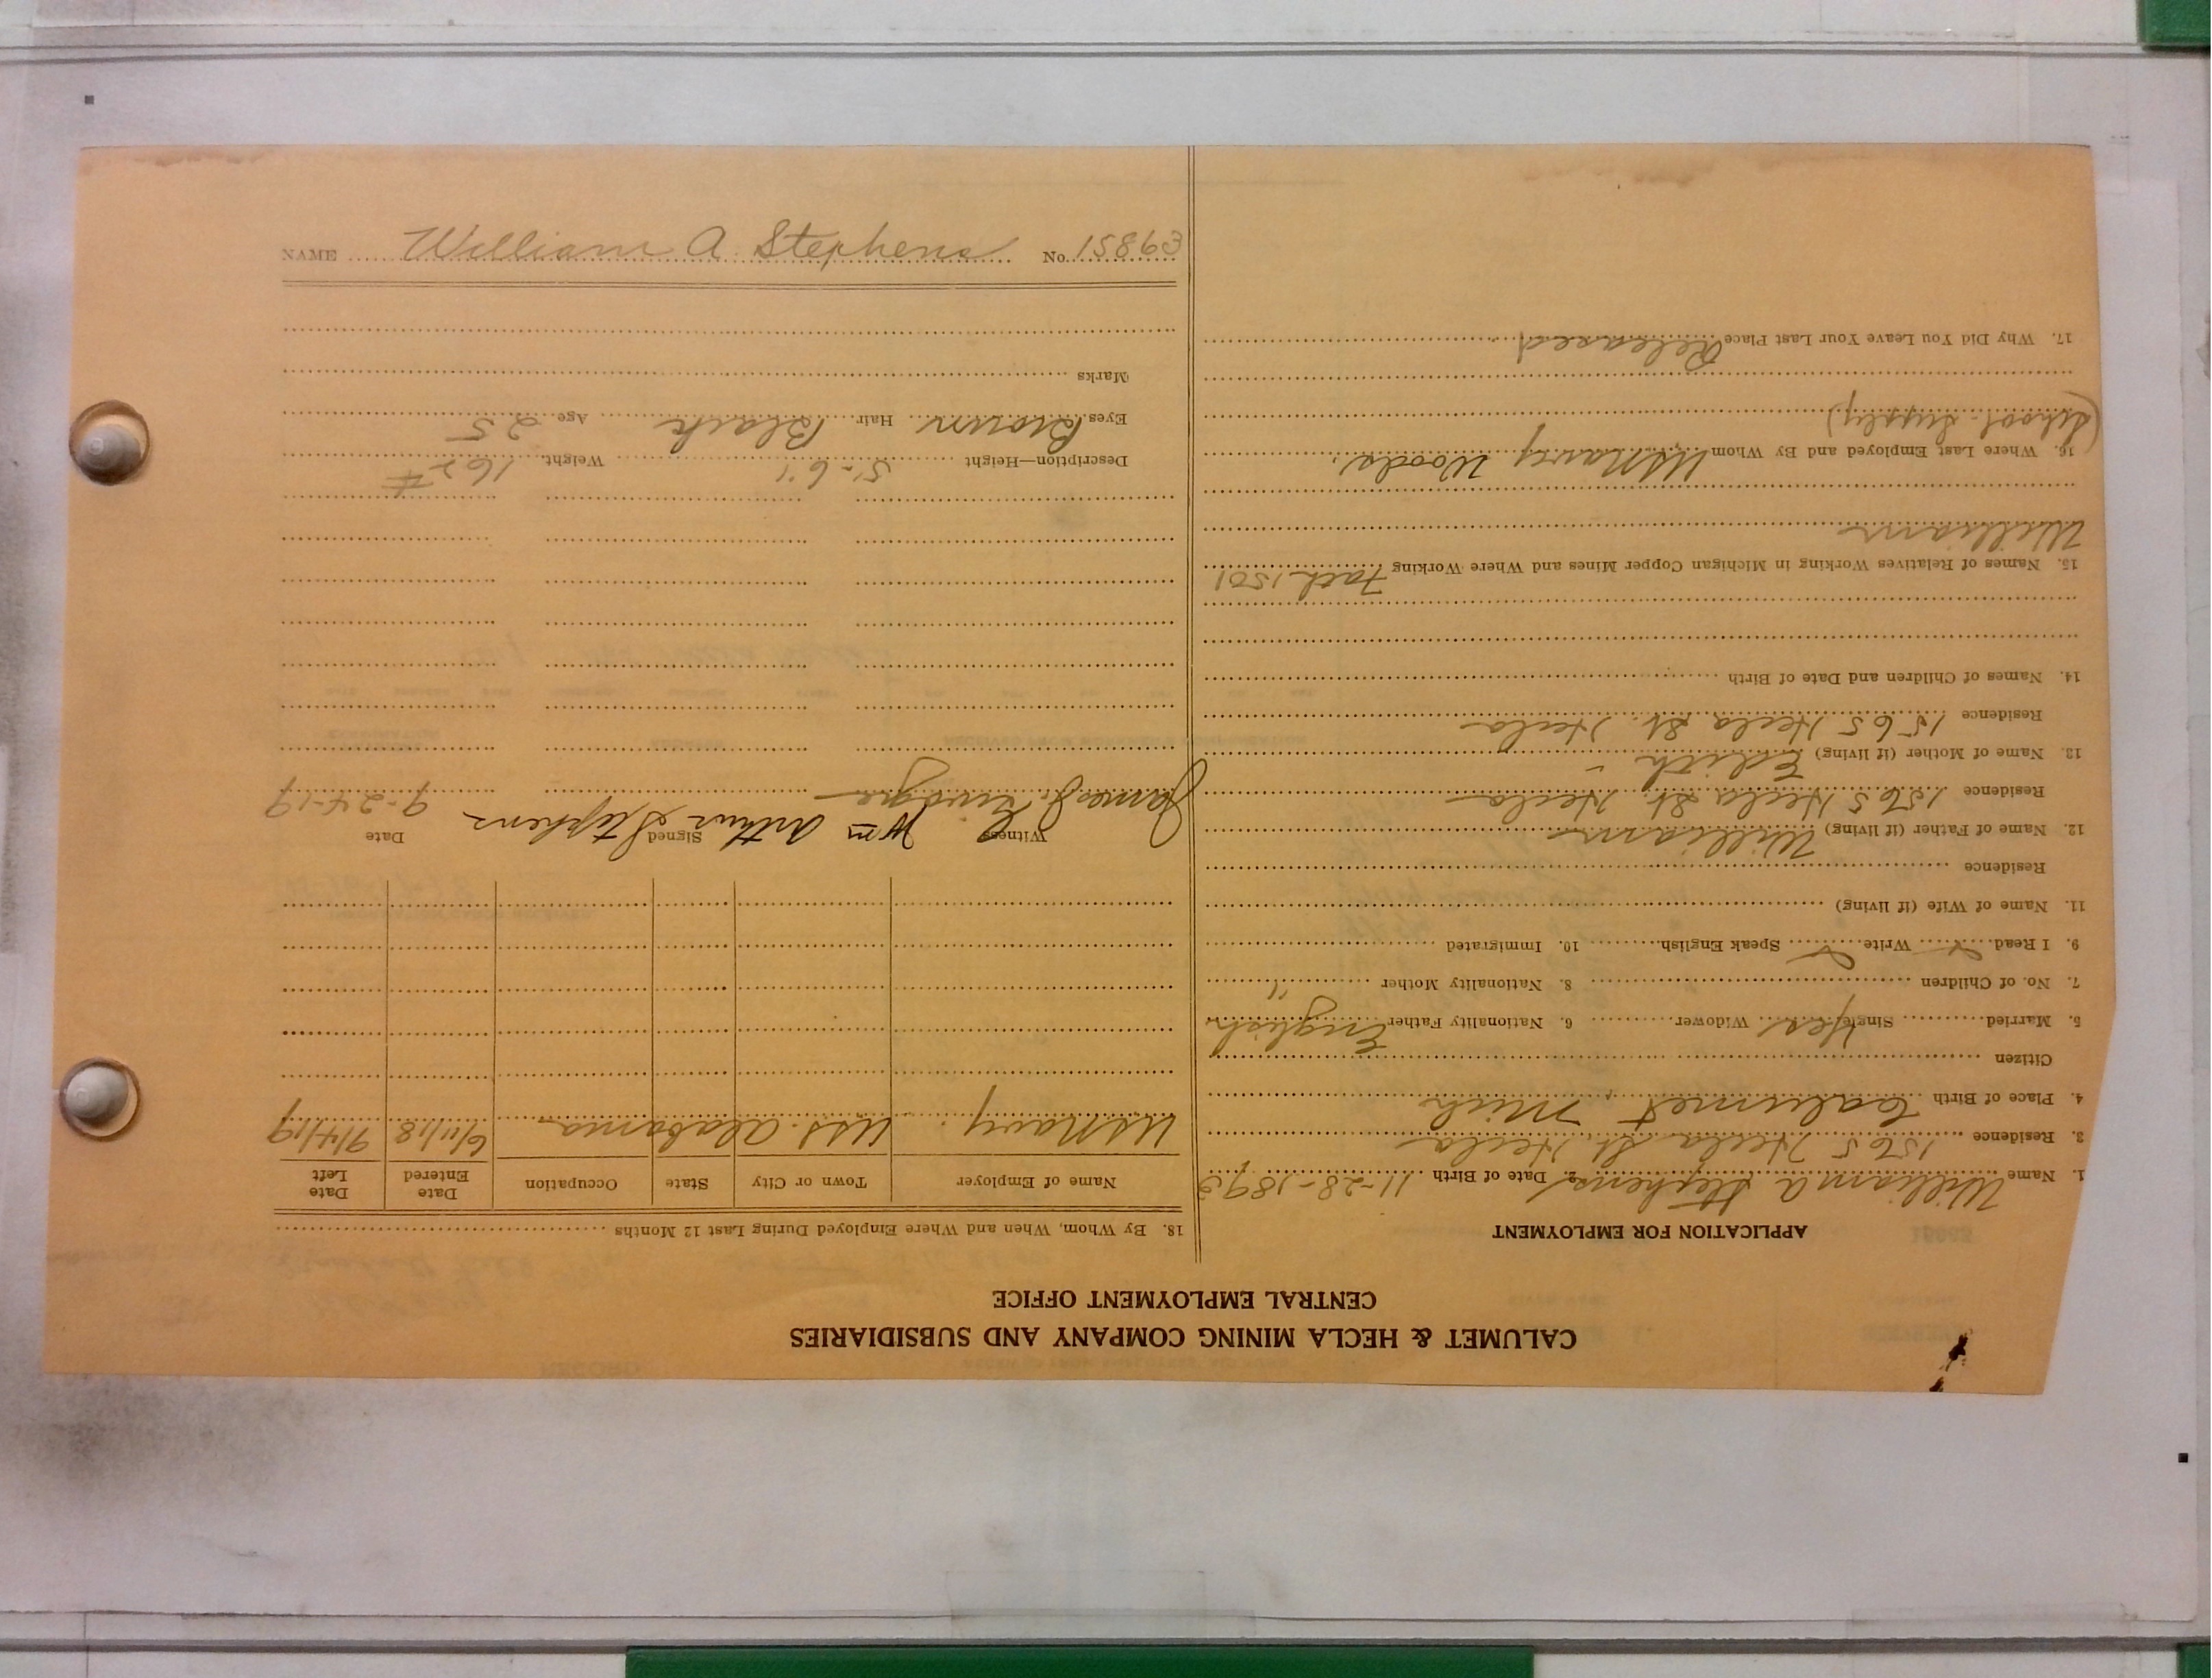 CALUMET & HECLA MINING COMPANY AND SUBSIDIARIES
CENTRAL EMPLOYMENT OFFICE
APPLICATION FOR EMPLOYMENT
1. Name William A Stephens 2. Date of Birth 11-28-1893
3. Residence 1565 Hecla St. Hecla
4. Place of Birth Calumet, Mich
Citizen
5. Married Single Yes Widower 6. Nationality Father English
7. No. of Children 8. Nationality Mother "
9. I Read Write Speak English 10. Immigrated
11. Name of Wife (if living)
Residence
12. Name of Father (if living) William
Residence 1565 Hecla St. Hecla
13. Name of Mother (if living) Edith
Residence 1565 Hecla St. Hecla
14. Names of Children and Date of Birth
15. Names of Relatives Working in Michigan Copper Mines and Where Working Fath. 1501
William
16. Where Last Employed and By Whom US Navy Woods.
(School Supply)
17. Why Did You Leave Your Last Place Released
18. By Whom, When and Where Employed During Last 12 Months
Name of Employer Town or City State Occupation Date Entered Date Left
US Navy. USS. Alabama 6/11/18 9/4/19
Witness Signed Date
James J. Wm Arthur Stephens 9-24-19
Description—Height 5'-6" Weight 162#
Eyes Brown Hair Black Age 25
Marks
NAME William A. Stephens No. 15863